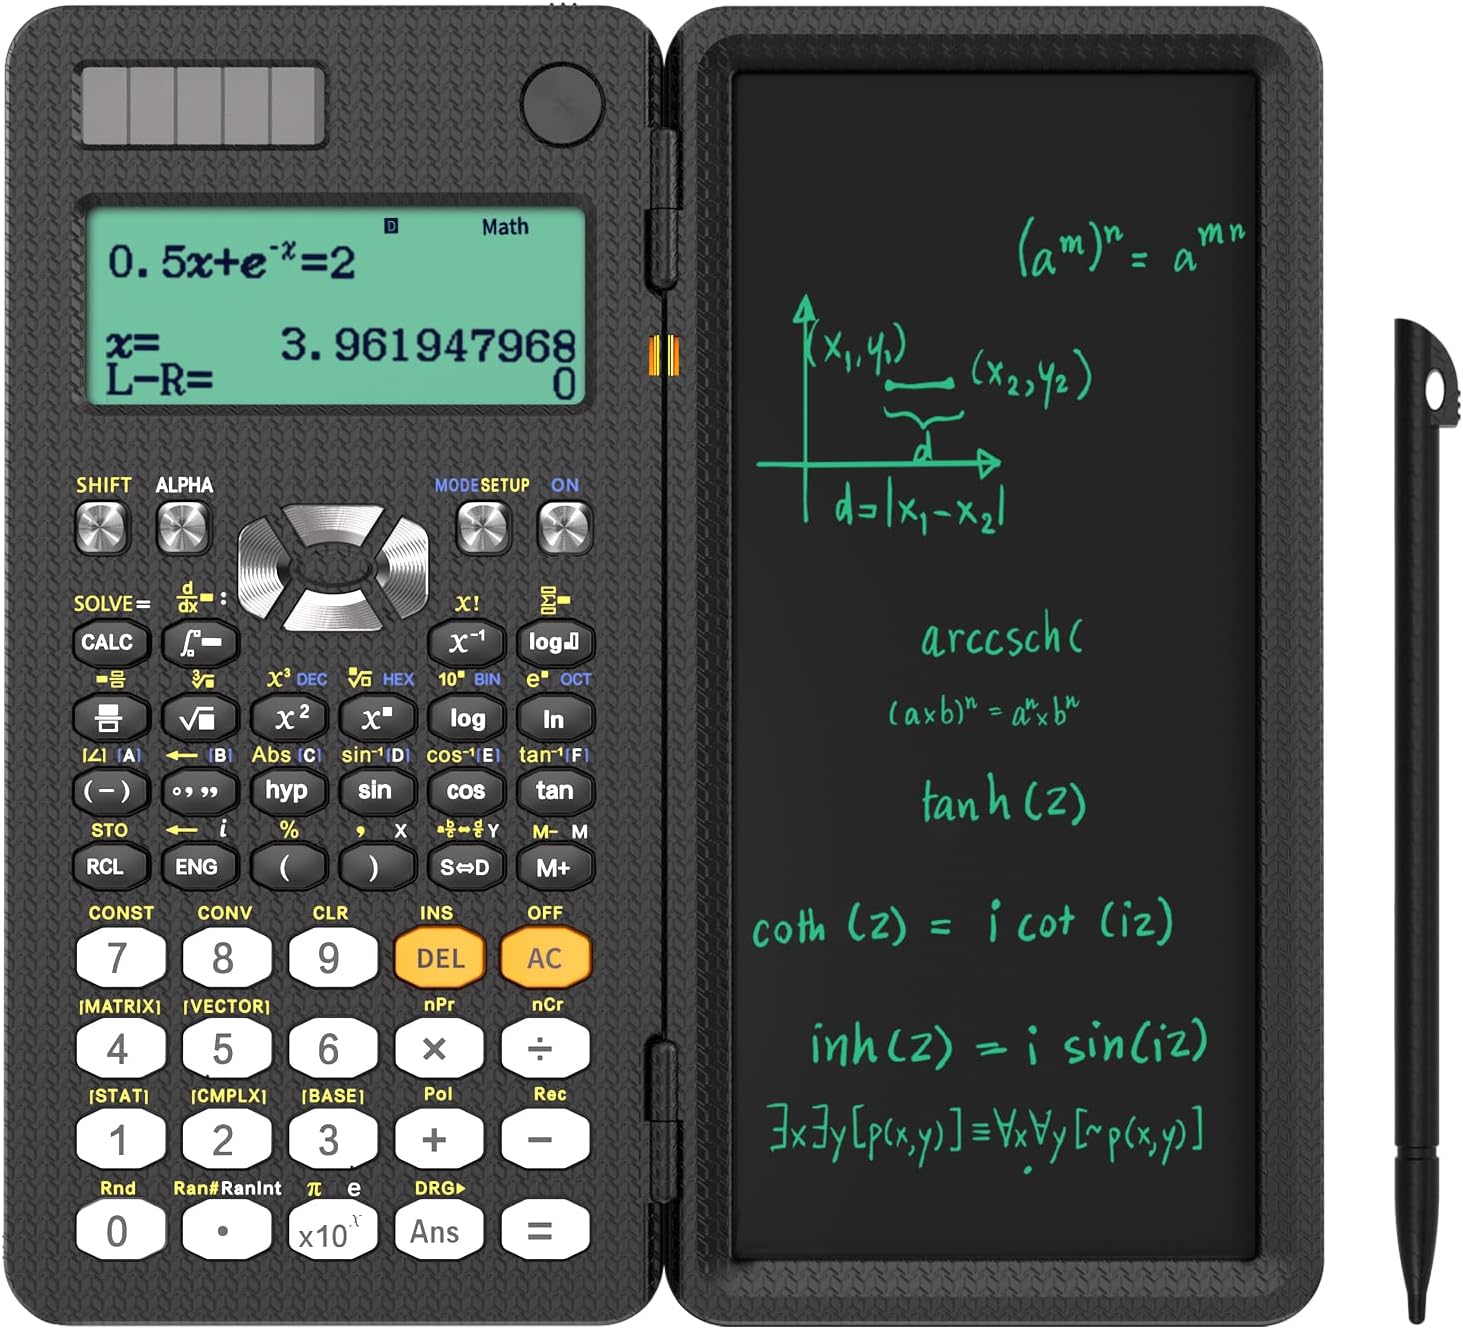 D Math
0.5x+e⁻ˣ=2
x= 3.961947968
L-R= 0
SHIFT ALPHA MODE SETUP ON
SOLVE = d/dx : x! Σ
CALC ∫ x⁻¹ log
³√ x³ DEC √ HEX 10■ BIN e■ OCT
√■ x² x■ log ln
[∠] [A] ← [B] Abs [C] sin⁻¹ [D] cos⁻¹ [E] tan⁻¹ [F]
(−) °,,, hyp sin cos tan
STO ← i % , X a b/c⇔d/c Y M− M
RCL ENG ( ) S⇔D M+
CONST CONV CLR INS OFF
7 8 9 DEL AC
[MATRIX] [VECTOR] nPr nCr
4 5 6 × ÷
[STAT] [CMPLX] [BASE] Pol Rec
1 2 3 + −
Rnd Ran# RanInt π e DRG▶
0 • x10ˣ Ans =
(aᵐ)ⁿ = aᵐⁿ
(x₁,y₁)
(x₂,y₂)
d
d=|x₁-x₂|
arccsch(
(axb)ⁿ = aⁿxbⁿ
tanh(z)
coth (z) = i cot (iz)
inh(z) = i sin(iz)
∃x∃y[p(x,y)]≡∀x∀y[~p(x,y)]